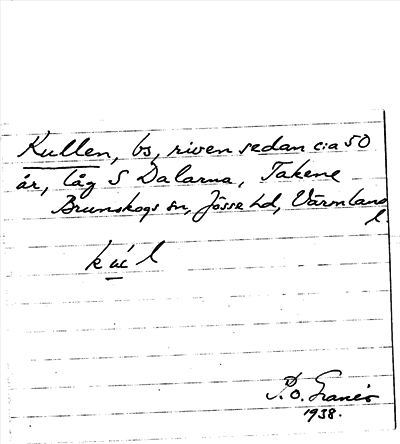 Kullen, bs, riven sedan c:a 50
år, låg S Dalarna, Takene
Brunskogs sn, Jösse hd, Värmland
l
kúl
P.O.
1938.